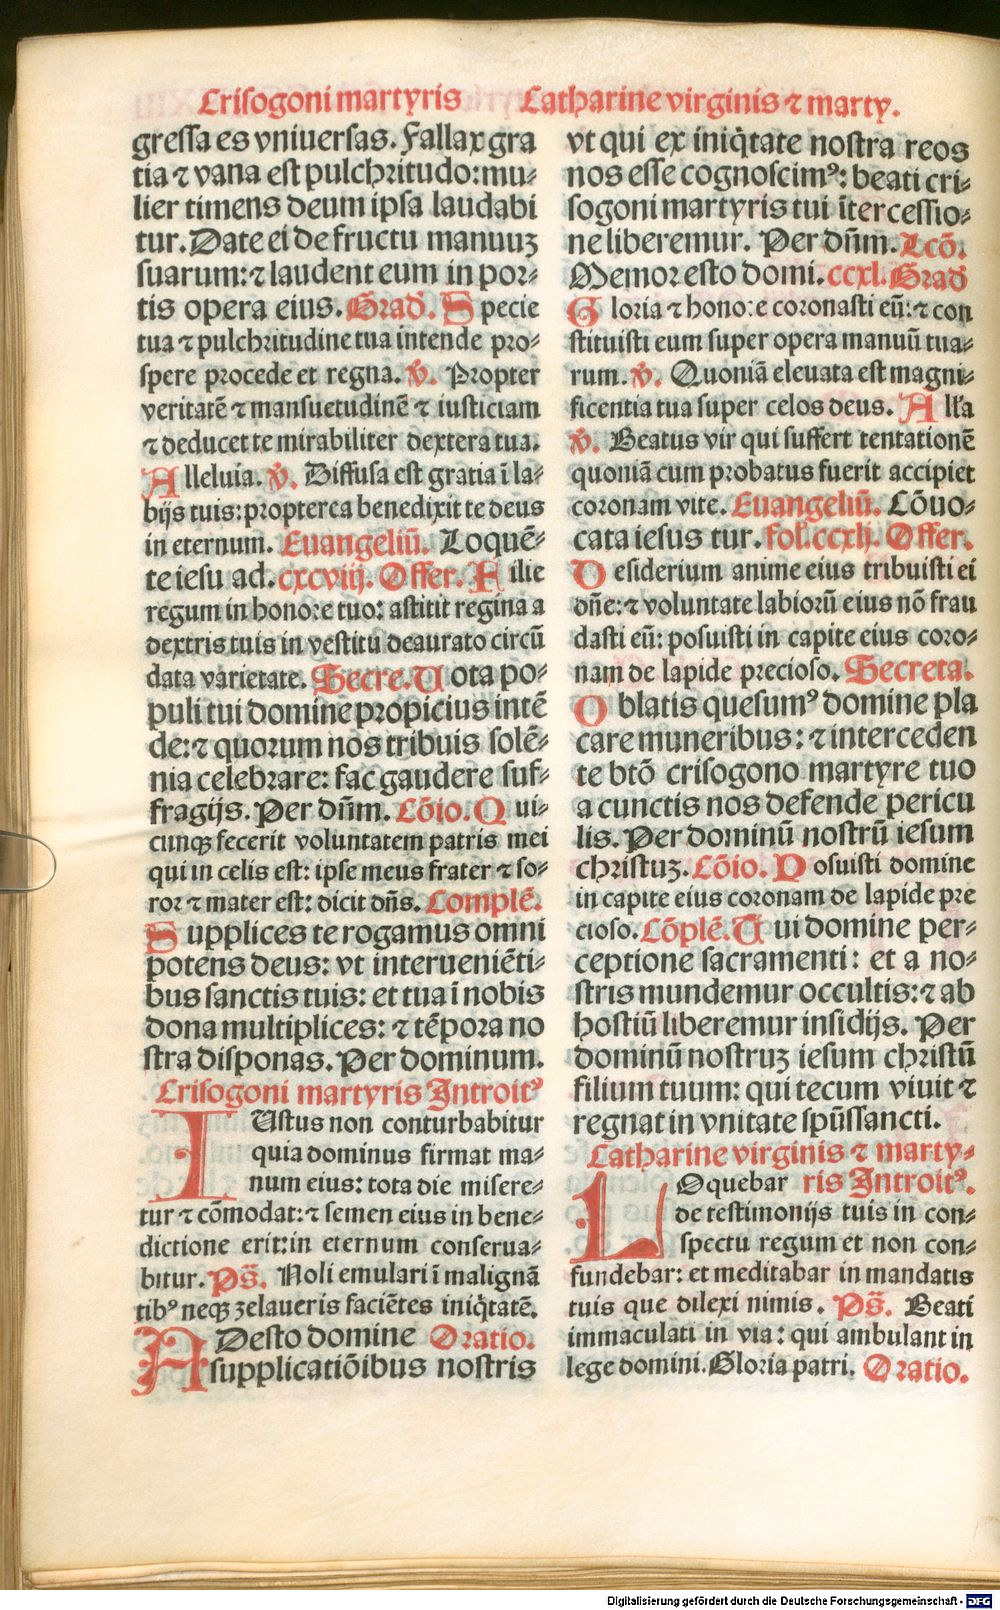 Crisogoni martyris
Catharine virginis ⁊ marty.
gressa es vniuersas. Fallax gra
tia ⁊ vana est pulchritudo: mu⸗
lier timens deum ipsa laudabi
tur. Date ei de fructu manuuʒ
suarum: ⁊ laudent eum in por⸗
tis opera eius. Grad̃. Specie
tua ⁊ pulchritudine tua intende pro⸗
spere procede et regna. ℣. Propter
veritatē ⁊ mansuetudinē ⁊ iusticiam
⁊ deducet te mirabiliter dextera tua.
Alleluia. ℣. Diffusa est gratia ī la⸗
bijs tuis: propterea benedixit te deus
in eternum. Euangeliū. Loquē⸗
te iesu ad. cxcviij. Offer. Filie
regum in honore tuo: astitit regina a
dextris tuis in vestitu deaurato circū
data varietate. Secre. Uota po⸗
puli tui domine propicius intē
de: ⁊ quorum nos tribuis solē⸗
nia celebrare: fac gaudere suf⸗
fragijs. Per dn̄m. Cōio. Qui⸗
cunqʒ fecerit voluntatem patris mei
qui in celis est: ipse meus frater ⁊ so⸗
ror ⁊ mater est: dicit dn̄s. Complē.
Supplices te rogamus omni
potens deus: vt interueniēti⸗
bus sanctis tuis: et tua ī nobis
dona multiplices: ⁊ tēpora no
stra disponas. Per dominum.
Crisogoni martyris Introitꝰ
IUstus non conturbabitur
quia dominus firmat ma⸗
num eius: tota die misere⸗
tur ⁊ cōmodat: ⁊ semen eius in bene⸗
dictione erit: in eternum conserua⸗
bitur. Ps̄. Noli emulari ī malignā
tibꝰ neqʒ zelaueris faciētes iniq̇tatē.
ADesto domine Oratio.
supplicatiōibus nostris
vt qui ex iniq̇tate nostra reos
nos esse cognoscimꝰ: beati cri⸗
sogoni martyris tui ītercessio⸗
ne liberemur. Per dn̄m. Lcō.
Memor esto domi. ccxl. Grad̃
Gloria ⁊ honore coronasti eū: ⁊ con
stituisti eum super opera manuū tua⸗
rum. ℣. Quoniā eleuata est magni⸗
ficentia tua super celos deus. All'a
℣. Beatus vir qui suffert tentationē
quoniā cum probatus fuerit accipiet
coronam vite. Euangeliū. Cōuo⸗
cata iesus tur. fol. ccxlj. Offer.
Desiderium anime eius tribuisti ei
dn̄e: ⁊ voluntate labiorū eius nō frau
dasti eū: posuisti in capite eius coro⸗
nam de lapide precioso. Secreta.
Oblatis quesumꝰ domine pla
care muneribus: ⁊ interceden
te btō crisogono martyre tuo
a cunctis nos defende pericu
lis. Per dominū nostrū iesum
christuʒ. Cōio. Posuisti domine
in capite eius coronam de lapide pre
cioso. Cōplē. Tui domine per⸗
ceptione sacramenti: et a no⸗
stris mundemur occultis: ⁊ ab
hostiū liberemur insidijs. Per
dominū nostruʒ iesum christū
filium tuum: qui tecum viuit ⁊
regnat in vnitate spūssancti.
Catharine virginis ⁊ marty⸗
LOquebar ris Introitꝰ.
de testimonijs tuis in con⸗
spectu regum et non con⸗
fundebar: et meditabar in mandatis
tuis que dilexi nimis. Ps̄. Beati
immaculati in via: qui ambulant in
lege domini. Gloria patri. Oratio.
Digitalisierung gefördert durch die Deutsche Forschungsgemeinschaft - DFG